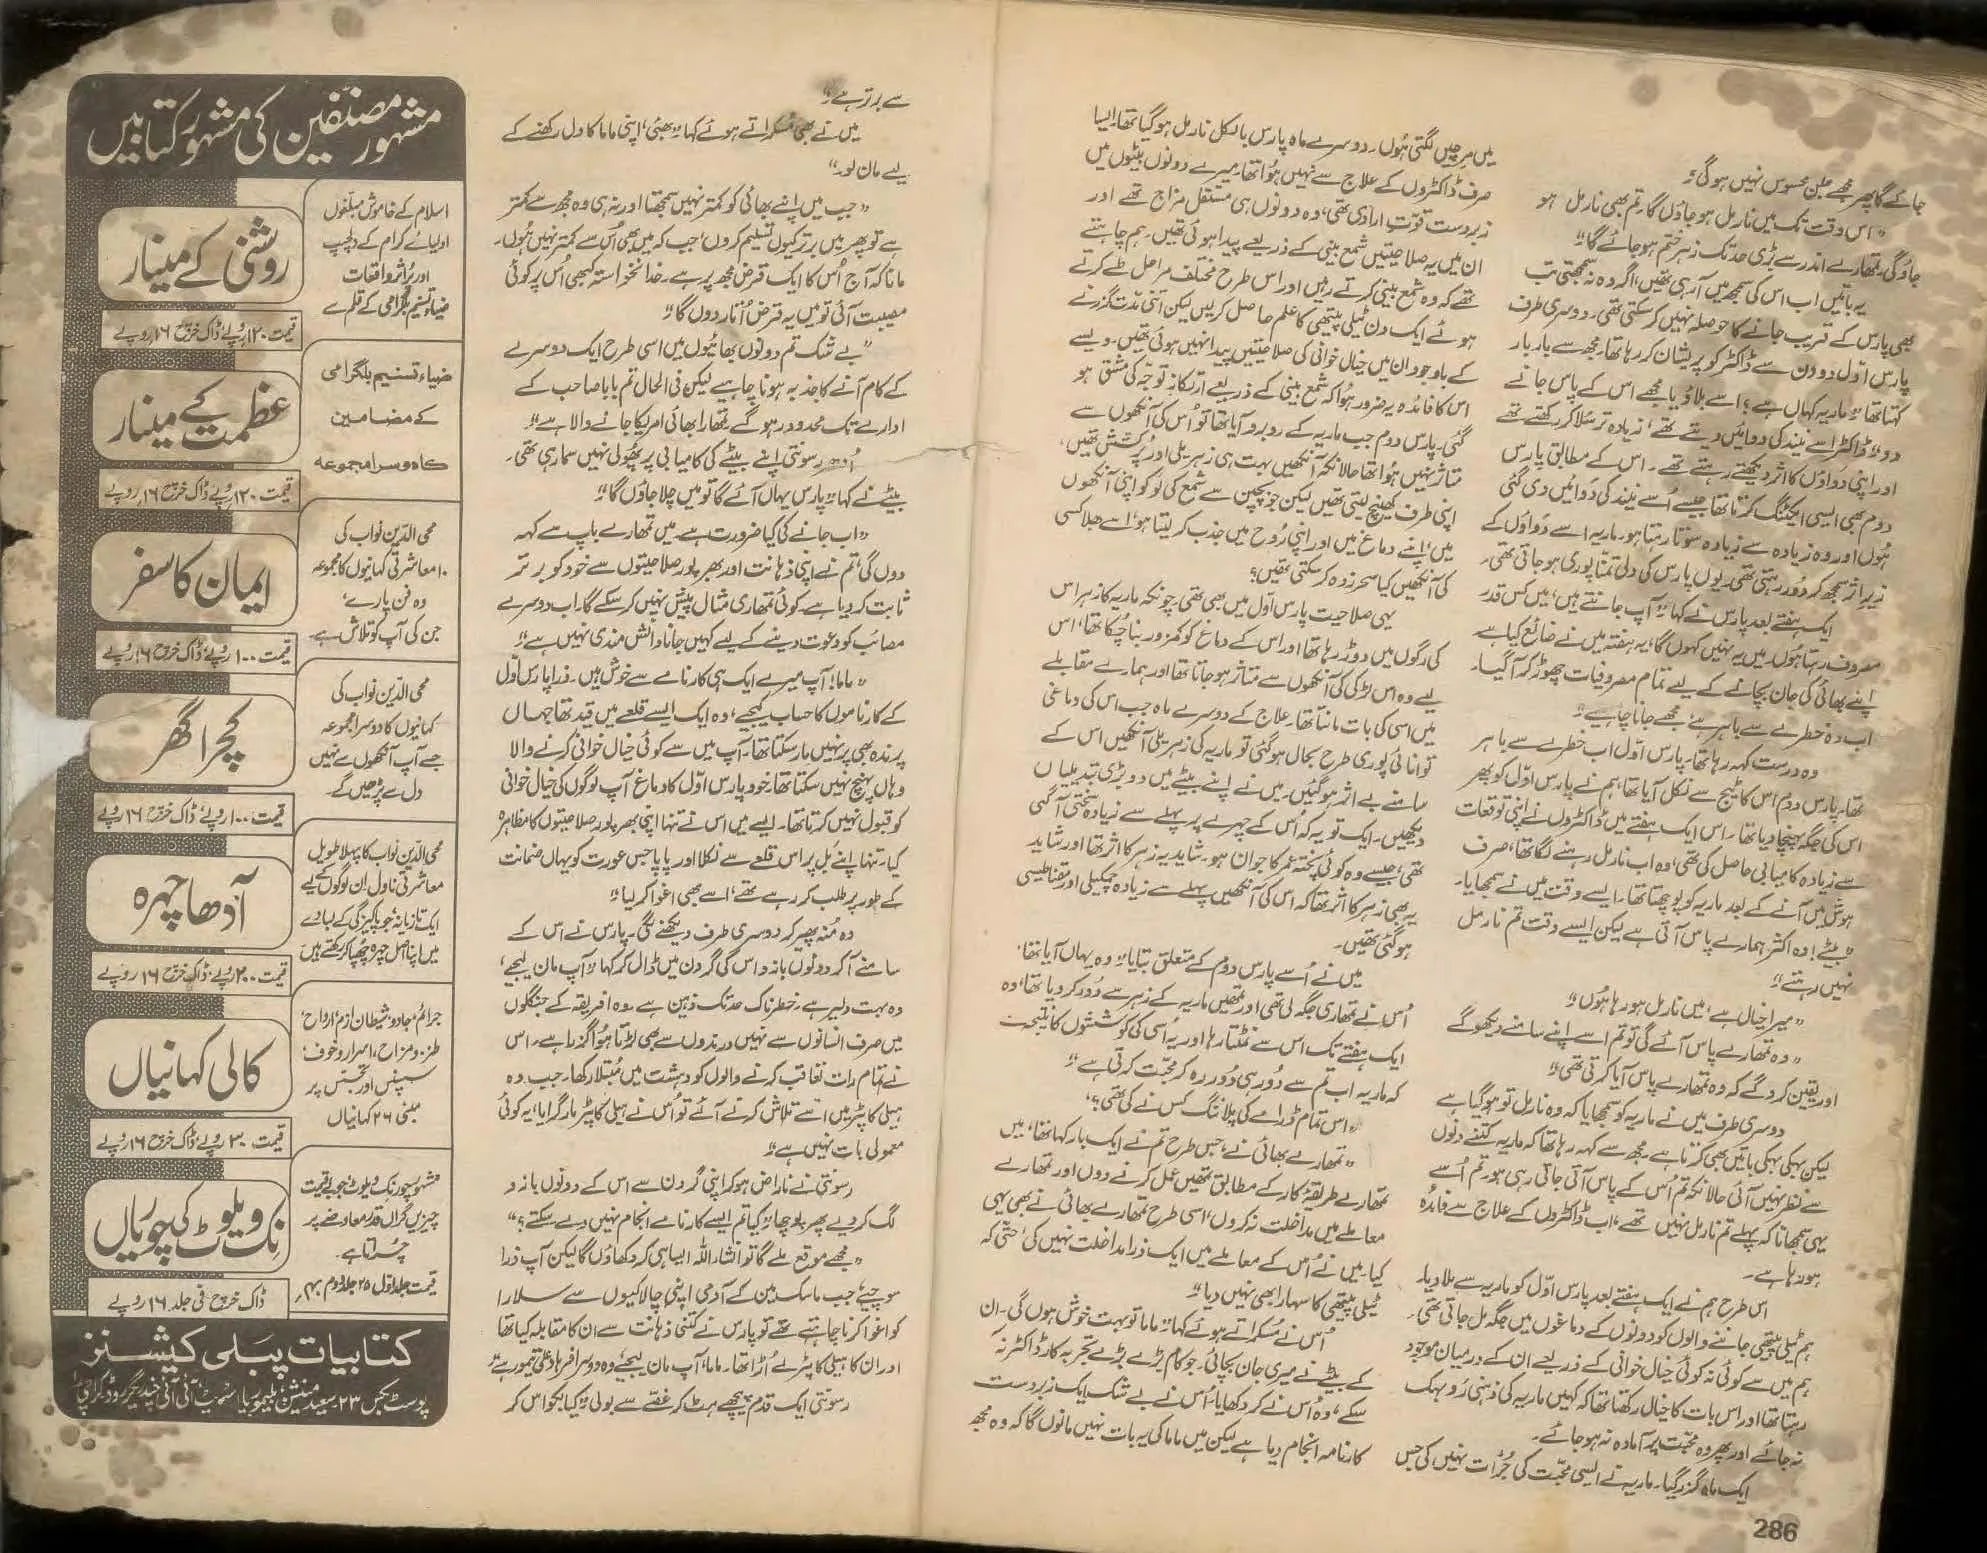 جائے گا پھر مجھے جلن محسوس نہیں ہوگی“
”اس وقت تک میں نارمل ہو جاؤں گا۔ تم بھی نارمل ہو
جاؤ گی۔ تمھارے اندر سے بڑی حد تک زہر ختم ہو جائے گا“
یہ باتیں اب اس کی سمجھ میں آ رہی تھیں، اگر وہ نہ سمجھتی تب
بھی پارس کے قریب جانے کا حوصلہ نہیں کر سکتی تھی۔ دوسری طرف
پارس اوّل دو دن سے ڈاکٹر کو پریشان کر رہا تھا۔ مجھ سے بار بار
کہتا تھا ”ماریہ کہاں ہے؟ اسے بلاؤ یا مجھے اس کے پاس جانے
دو“ ڈاکٹر اسے نیند کی دوائیں دیتے تھے، زیادہ تر سُلا کر رکھتے تھے
اور اپنی دواؤں کا اثر دیکھتے رہتے تھے۔ اس کے مطابق پارس
دوم بھی ایسی ایکٹنگ کرتا تھا جیسے اُسے نیند کی دوائیں دی گئی
ہوں اور وہ زیادہ سے زیادہ سوتا رہتا ہو۔ ماریہ اسے دواؤں کے
زیرِ اثر سمجھ کر دُور رہتی تھی۔ یوں پارس کی دلی تمنّا پوری ہو جاتی تھی۔
ایک ہفتے بعد پارس نے کہا ”آپ جانتے ہیں، میں کس قدر
مصروف رہتا ہوں۔ میں یہ نہیں کہوں گا، یہ ہفتہ میں نے ضائع کیا ہے
اپنے بھائی کی جان بچانے کے لیے تمام مصروفیات چھوڑ کر آ گیا۔
اب وہ خطرے سے باہر ہے، مجھے جانا چاہیے“
وہ درست کہہ رہا تھا۔ پارس اوّل اب خطرے سے باہر
تھا۔ پارس دوم اس کاٹیج سے نکل آیا تھا، ہم نے پارس اوّل کو پھر
اس کی جگہ پہنچا دیا تھا۔ اس ایک ہفتے میں ڈاکٹروں نے اپنی توقعات
سے زیادہ کامیابی حاصل کی تھی، وہ اب نارمل رہنے لگا تھا، صرف
ہوش میں آنے کے بعد ماریہ کو پوچھتا تھا۔ ایسے وقت میں نے سمجھایا۔
”بیٹے! وہ اکثر ہمارے پاس آتی ہے لیکن ایسے وقت تم نارمل
نہیں رہتے“
”میرا خیال ہے، میں نارمل ہو رہا ہوں“
”وہ تمھارے پاس آئے گی تو تم اسے اپنے سامنے دیکھو گے
اور یقین کرو گے کہ وہ تمھارے پاس آیا کرتی تھی“
دوسری طرف میں نے ماریہ کو سمجھایا کہ وہ نارمل تو ہو گیا ہے
لیکن بہکی بہکی باتیں بھی کرتا ہے۔ مجھ سے کہہ رہا تھا کہ ماریہ کتنے دنوں
سے نظر نہیں آئی حالانکہ تم اُس کے پاس آتی جاتی رہی ہو۔ تم اُسے
یہی سمجھانا کہ پہلے تم نارمل نہیں تھے، اب ڈاکٹروں کے علاج سے فائدہ
ہو رہا ہے۔
اس طرح ہم نے ایک ہفتے بعد پارس اوّل کو ماریہ سے ملا دیا۔
ہم ٹیلی پیتھی جاننے والوں کو دونوں کے دماغوں میں جگہ مل جاتی تھی۔
ہم میں سے کوئی نہ کوئی خیال خوانی کے ذریعے ان کے درمیان موجود
رہتا تھا اور اس بات کا خیال رکھتا تھا کہ کہیں ماریہ کی ذہنی رَو بہک
نہ جائے اور پھر وہ محبّت پر آمادہ نہ ہو جائے۔
ایک ماہ گزر گیا۔ ماریہ نے ایسی محبّت کی جُرأت نہیں کی جس
میں مرچیں لگتی ہوں۔ دوسرے ماہ پارس بالکل نارمل ہو گیا تھا۔ ایسا
صرف ڈاکٹروں کے علاج سے نہیں ہوا تھا۔ میرے دونوں بیٹوں میں
زبردست قوّتِ ارادی تھی، وہ دونوں ہی مستقل مزاج تھے اور
ان میں یہ صلاحیتیں شمع بینی کے ذریعے پیدا ہوئی تھیں۔ ہم چاہتے
تھے کہ وہ شمع بینی کرتے رہیں اور اس طرح مختلف مراحل طے کرتے
ہوئے ایک دن ٹیلی پیتھی کا علم حاصل کر لیں لیکن اتنی مدّت گزرنے
کے باوجود ان میں خیال خوانی کی صلاحیتیں پیدا نہیں ہوئی تھیں۔ ویسے
اس کا فائدہ یہ ضرور ہوا کہ شمع بینی کے ذریعے ارتکازِ توجّہ کی مشق ہو
گئی۔ پارس دوم جب ماریہ کے روبرو آیا تھا تو اُس کی آنکھوں سے
متاثر نہیں ہوا تھا حالانکہ آنکھیں بہت ہی زہریلی اور پُرکشش تھیں،
اپنی طرف کھینچ لیتی تھیں لیکن جو بچپن سے شمع کی لَو کو اپنی آنکھوں
میں، اپنے دماغ میں اور اپنی رُوح میں جذب کر لیتا ہو، اسے بھلا کسی
کی آنکھیں کیا سحر زدہ کر سکتی تھیں؟
یہی صلاحیت پارس اوّل میں بھی تھی۔ چونکہ ماریہ کا زہر اس
کی رگوں میں دوڑ رہا تھا اور اس کے دماغ کو کمزور بنا چُکا تھا، اس
لیے وہ اس لڑکی کی آنکھوں سے متاثر ہو جاتا تھا اور ہمارے مقابلے
میں اسی کی بات مانتا تھا۔ علاج کے دوسرے ماہ جب اس کی دماغی
توانائی پوری طرح بحال ہو گئی تو ماریہ کی زہریلی آنکھیں اس کے
سامنے بے اثر ہو گئیں۔ میں نے اپنے بیٹے میں دو بڑی تبدیلیاں
دیکھیں۔ ایک تو یہ کہ اُس کے چہرے پر پہلے سے زیادہ پختگی آ گئی
تھی، جیسے وہ کوئی پختہ عمر کا جوان ہو۔ شاید یہ زہر کا اثر تھا اور شاید
یہ بھی زہر کا اثر تھا کہ اس کی آنکھیں پہلے سے زیادہ چمکیلی اور مقناطیسی
ہو گئی تھیں۔
میں نے اُسے پارس دوم کے متعلق بتایا ”وہ یہاں آیا تھا۔
اُس نے تمھاری جگہ لی تھی اور تمھیں ماریہ کے زہر سے دُور کر دیا تھا، وہ
ایک ہفتے تک اس سے نمٹتا رہا اور یہ اُسی کی کوششوں کا نتیجہ ہے
کہ ماریہ اب تم سے دُور ہی دُور رہ کر محبّت کرتی ہے“
”اس تمام ڈرامے کی پلاننگ کس نے کی تھی؟“
”تمھارے بھائی نے، جس طرح تم نے ایک بار کہا تھا، میں
تمھارے طریقۂ کار کے مطابق تمھیں عمل کرنے دوں اور تمھارے
معاملے میں مداخلت نہ کروں، اسی طرح تمھارے بھائی نے بھی یہی
کیا۔ میں نے اُس کے معاملے میں ایک ذرا مداخلت نہیں کی، حتّٰی کہ
ٹیلی پیتھی کا سہارا بھی نہیں دیا“
اُس نے مُسکراتے ہوئے کہا ”ماما تو بہت خوش ہوں گی۔ ان
کے بیٹے نے میری جان بچائی۔ جو کام بڑے بڑے تجربہ کار ڈاکٹر نہ کر
سکے، وہ اُس نے کر دکھایا۔ اُس نے بے شک ایک زبردست
کارنامہ انجام دیا ہے لیکن میں ماما کی یہ بات نہیں مانوں گا کہ وہ مجھ
286
سے برتر ہے“
میں نے بھی مُسکراتے ہوئے کہا ”بھئی، اپنی ماما کا دل رکھنے کے
لیے مان لو۔“
”جب میں اپنے بھائی کو کمتر نہیں سمجھتا اور نہ ہی وہ مجھ سے کمتر
ہے تو پھر میں برتر کیوں تسلیم کروں، جب کہ میں بھی اُس سے کمتر نہیں ہوں۔
مانا کہ آج اُس کا ایک قرض مجھ پر ہے۔ خدانخواستہ کبھی اُس پر کوئی
مصیبت آئی تو میں یہ قرض اُتار دوں گا“
”بے شک تم دونوں بھائیوں میں اسی طرح ایک دوسرے
کے کام آنے کا جذبہ ہونا چاہیے لیکن فی الحال تم بابا صاحب کے
ادارے تک محدود رہو گے۔ تمھارا بھائی امریکا جانے والا ہے“
اُدھر رسونتی اپنے بیٹے کی کامیابی پر پھولی نہیں سما رہی تھی۔
بیٹے نے کہا ”پارس یہاں آئے گا تو میں چلا جاؤں گا“
”اب جانے کی کیا ضرورت ہے۔ میں تمھارے باپ سے کہہ
دوں گی، تم نے اپنی ذہانت اور بھرپور صلاحیتوں سے خود کو برتر
ثابت کر دیا ہے۔ کوئی تمھاری مثال پیش نہیں کر سکے گا۔ اب دوسرے
مصائب کو دعوت دینے کے لیے کہیں جانا دانش مندی نہیں ہے“
”ماما! آپ میرے ایک ہی کارنامے سے خوش ہیں۔ ذرا پارس اوّل
کے کارناموں کا حساب کیجیے، وہ ایک ایسے قلعے میں قید تھا جہاں
پرندہ بھی پر نہیں مار سکتا تھا۔ آپ میں سے کوئی خیال خوانی کرنے والا
وہاں پہنچ نہیں سکتا تھا۔ خود پارس اوّل کا دماغ آپ لوگوں کی خیال خوانی
کو قبول نہیں کرتا تھا۔ ایسے میں اس نے تنہا اپنی بھرپور صلاحیتوں کا مظاہرہ
کیا۔ تنہا اپنے بَل پر اس قلعے سے نکلا اور پاپا جس عورت کو یہاں ضمانت
کے طور پر طلب کر رہے تھے، اسے بھی اغوا کر لیا“
وہ مُنہ پھیر کر دوسری طرف دیکھنے لگی۔ پارس نے اس کے
سامنے آ کر دونوں بازو اس کی گردن میں ڈال کر کہا ”آپ مان لیجیے،
وہ بہت دلیر ہے۔ خطرناک حد تک ذہین ہے۔ وہ افریقہ کے جنگلوں
میں صرف انسانوں سے نہیں درندوں سے بھی لڑتا ہوا گذرا ہے۔ اس
نے تمام رات تعاقب کرنے والوں کو دہشت میں مُبتلا رکھا۔ جب وہ
ہیلی کاپٹر میں اُسے تلاش کرنے آئے تو اُس نے ہیلی کاپٹر مار گرایا، یہ کوئی
معمولی بات نہیں ہے“
رسونتی نے ناراض ہو کر اپنی گردن سے اس کے دونوں بازو
الگ کر دیے پھر پوچھا ”کیا تم ایسے کارنامے انجام نہیں دے سکتے؟“
”مجھے موقع ملے گا تو انشاء اللہ ایسا ہی کر دکھاؤں گا لیکن آپ ذرا
سوچیے، جب ماسک مین کے آدمی اپنی چالاکیوں سے سلارا
کو اغوا کرنا چاہتے تھے تو پارس نے کتنی ذہانت سے ان کا مقابلہ کیا تھا
اور ان کا ہیلی کاپٹر لے اُڑا تھا۔ ماما، آپ مان لیجیے، وہ دوسرا فرہاد علی تیمور ہے“
رسونتی ایک قدم پیچھے ہٹ کر غصّے سے بولی ”کیا بکواس کر
مشہور مصنّفین کی مشہور کتابیں
اسلام کے خاموش مبلغوں
اولیائے کرام کے دلچسپ
اور پُراثر واقعات
ضیاء تسنیم بلگرامی کے قلم سے
روشنی کے مینار
قیمت ۱۲۰ روپے ڈاک خرچ ۱۶ روپے
ضیاء تسنیم بلگرامی
کے مضامین
کا دوسرا مجموعہ
عظمت کے مینار
قیمت ۱۲۰ روپے ڈاک خرچ ۱۶ روپے
محی الدّین نواب کی
۱۰ معاشرتی کہانیوں کا مجموعہ
وہ فن پارے،
جن کی آپ کو تلاش ہے۔
ایمان کا سفر
قیمت ۱۰۰ روپے ڈاک خرچ ۱۶ روپے
محی الدّین نواب کی
کہانیوں کا دوسرا مجموعہ
جسے آپ آنکھوں سے نہیں
دل سے پڑھیں گے۔
کچرا گھر
قیمت ۱۰۰ روپے ڈاک خرچ ۱۶ روپے
محی الدّین نواب کا پہلا طویل
معاشرتی ناول۔ ان لوگوں کے لیے
ایک تازیانہ جو پاکیزگی کے لبادے
میں اپنا اصل چہرہ چُھپا کر رکھتے ہیں
آدھا چہرہ
قیمت ۲۰۰ روپے ڈاک خرچ ۱۶ روپے
جرائم، جادو، شیطان ازم، ارواح،
طنز و مزاح، اسرار و خوف،
سسپنس اور تجسّس پر
مبنی ۲۶ کہانیاں
کالی کہانیاں
قیمت ۳۰ روپے ڈاک خرچ ۱۶ روپے
مشہور چور نک ویلوٹ جو بے قیمت
چیزیں گراں قدر معاوضے پر
چُراتا ہے۔
قیمت جلد اوّل ۲۵ جلد دوم ۴۰
نک ویلوٹ کی چوریاں
ڈاک خرچ فی جلد ۱۶ روپے
کتابیات پبلی کیشنز
پوسٹ بکس ۲۳۔ سعید منشن، بلیموریا اسٹریٹ، آئی آئی چندریگر روڈ، کراچی